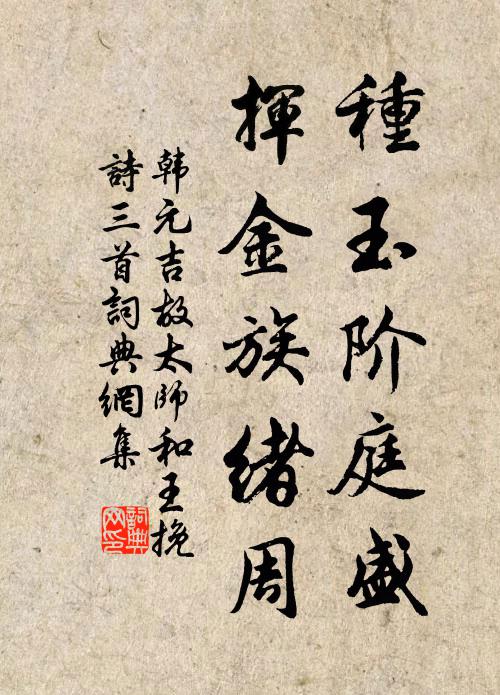 種玉阶庭盛
揮金族绪周
韩元吉故太師和王挽
詩三首詞典網集
詞典
网印